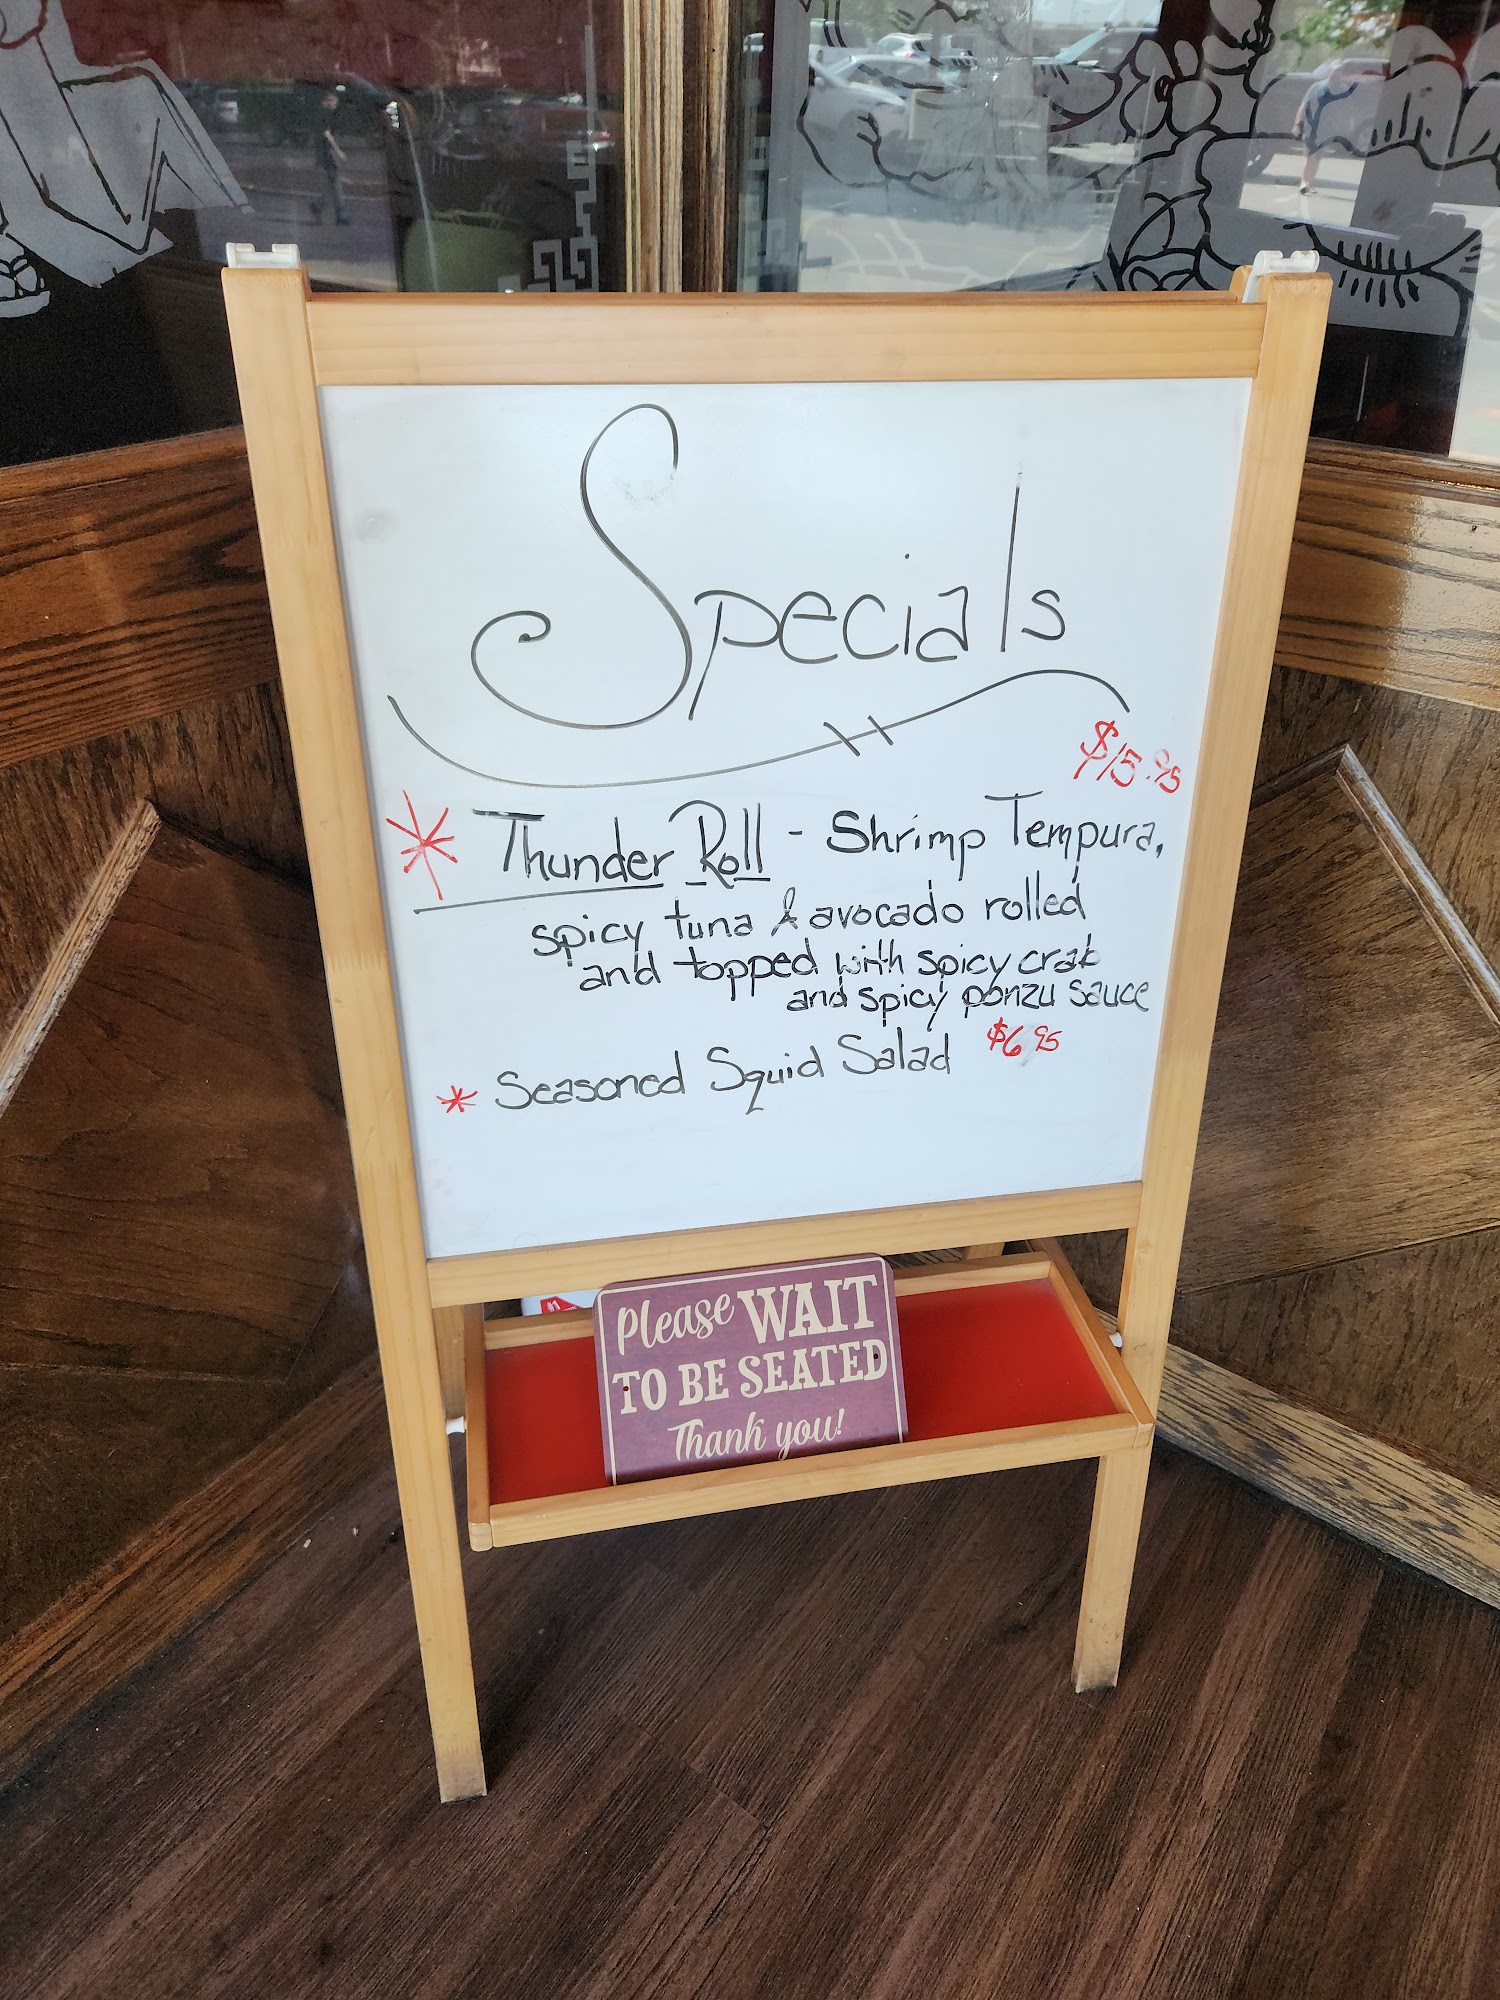 Specials
$15.95
* Thunder Roll - Shrimp Tempura,
spicy tuna & avocado rolled
and topped with spicy crab
and spicy ponzu sauce
* Seasoned Squid Salad $6.95
#1
Please WAIT
TO BE SEATED
Thank you!